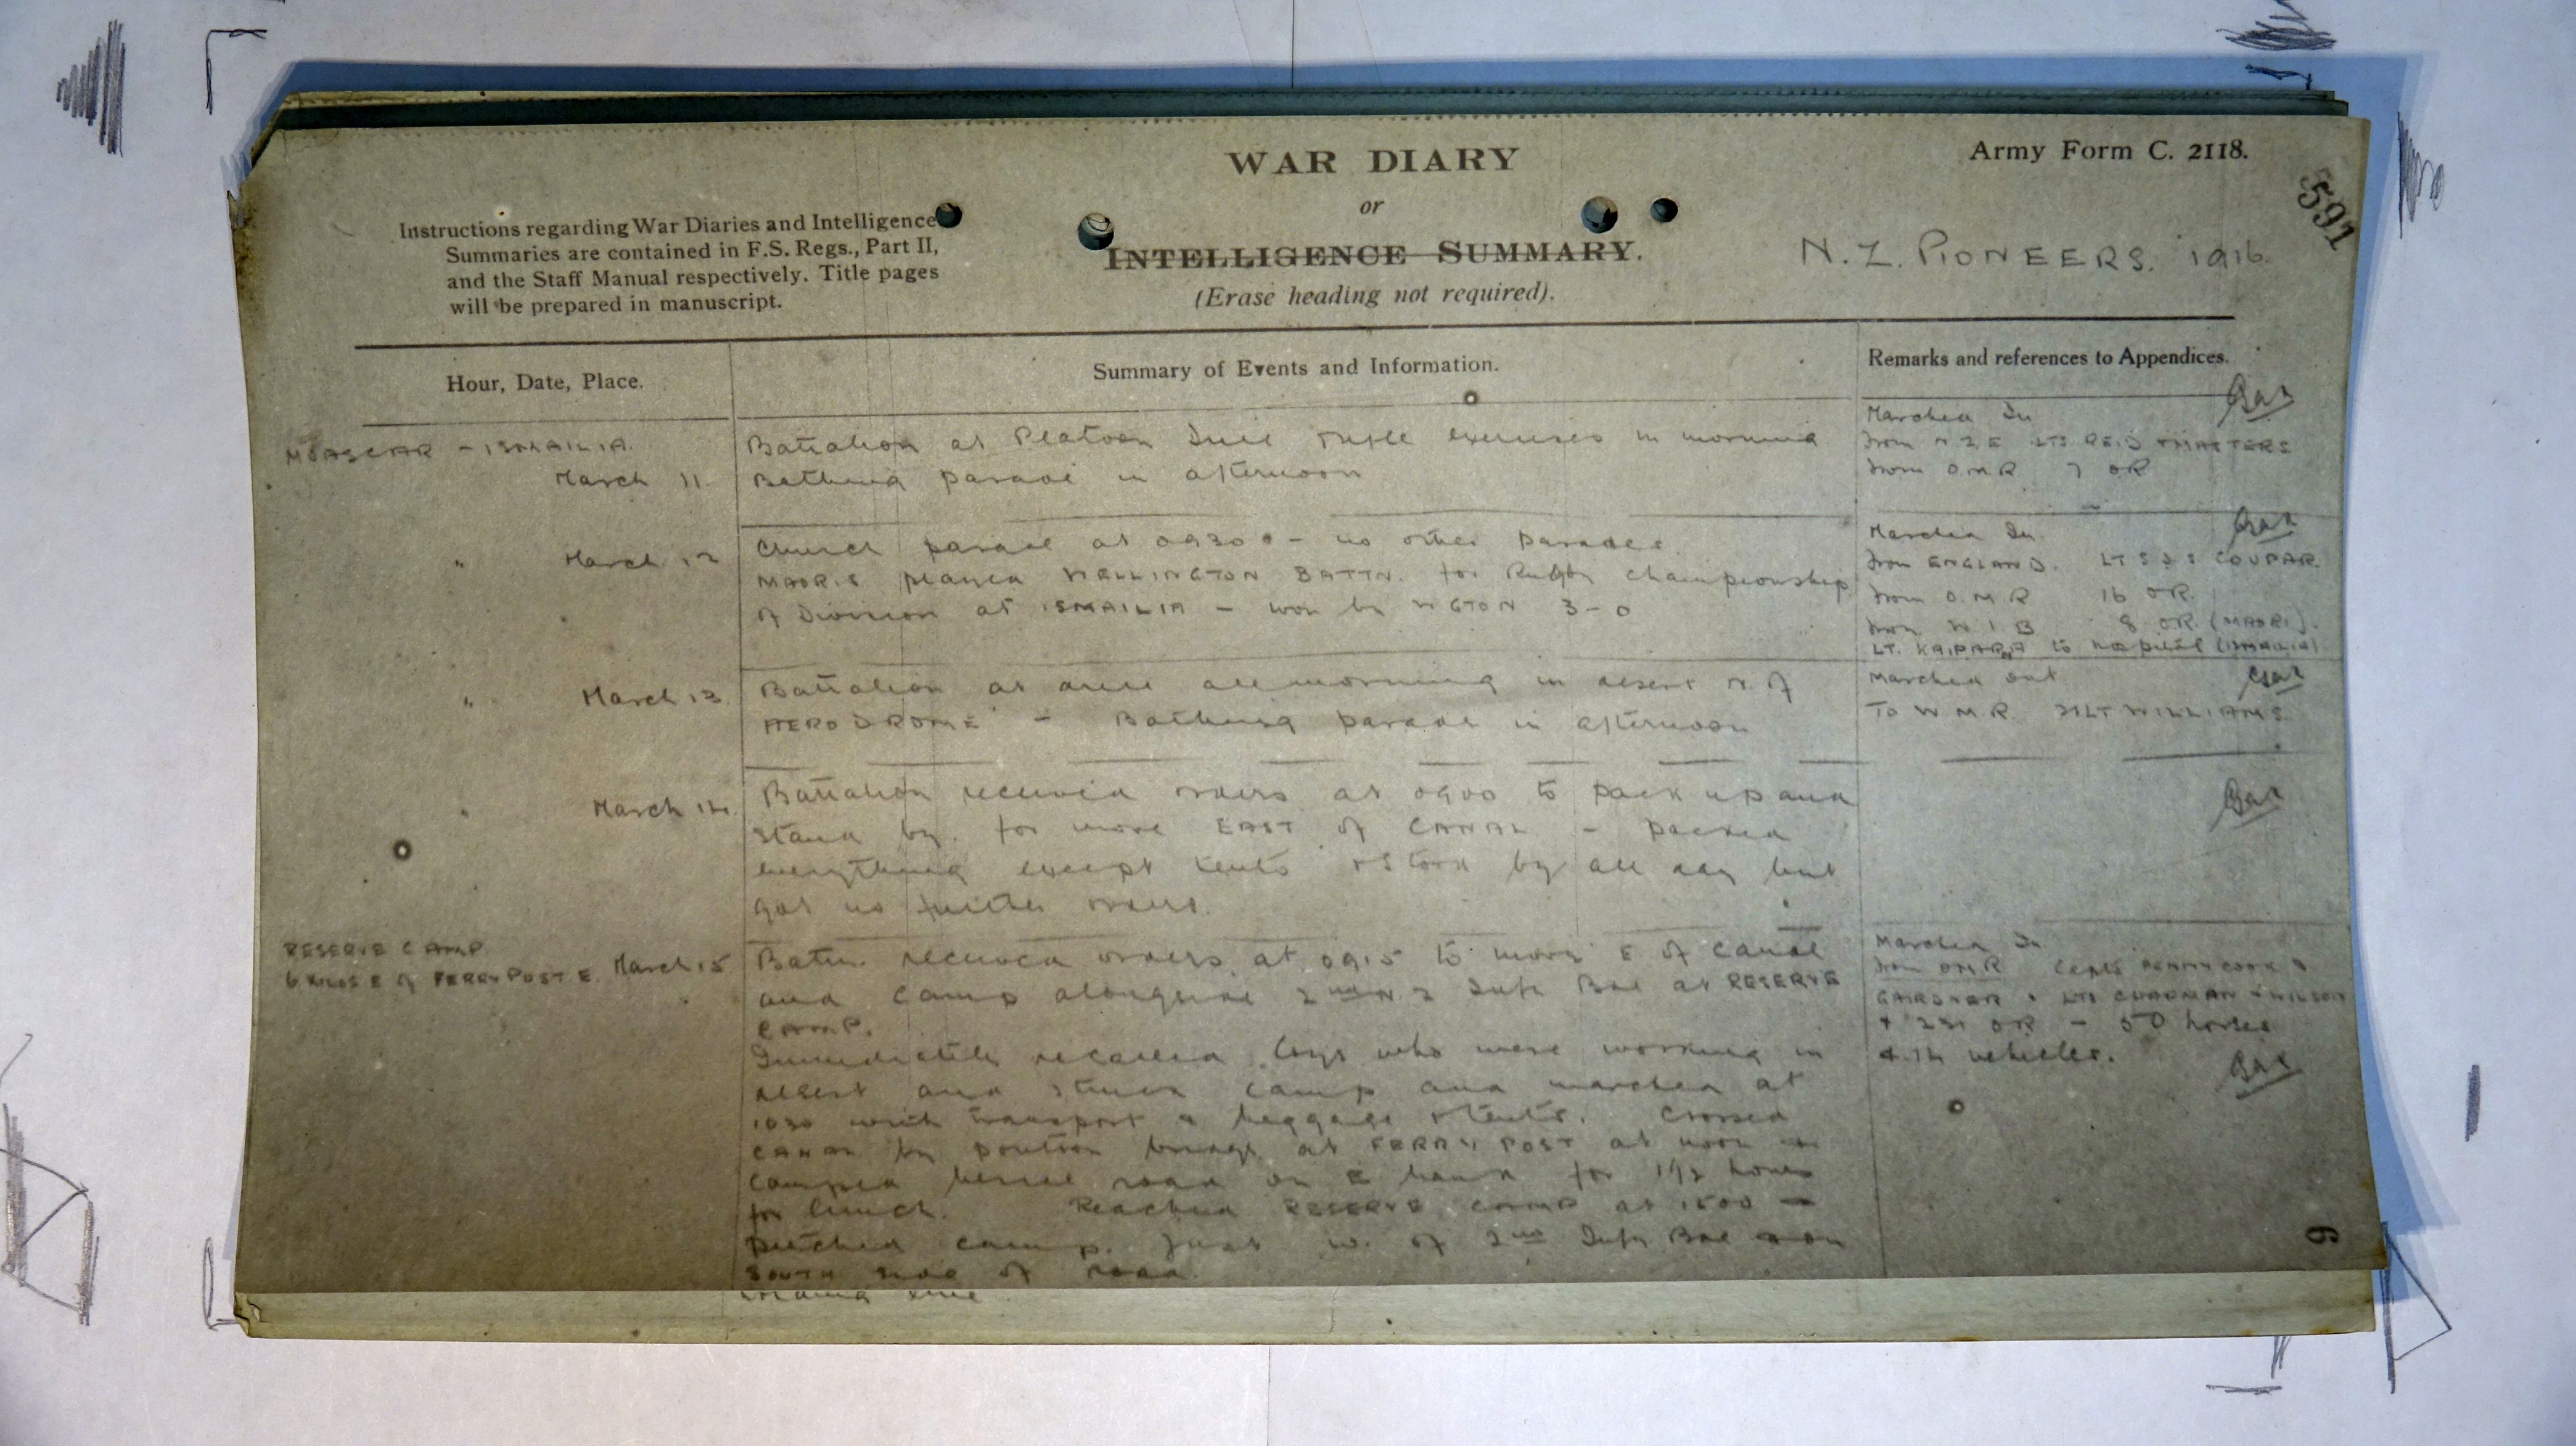 WAR DIARY
or
INTELLIGENCE SUMMARY.
(Erase heading not required).
Army Form C. 2118.
591
Instructions regarding War Diaries and Intelligence
Summaries are contained in F.S. Regs., Part II,
and the Staff Manual respectively. Title pages
will be prepared in manuscript.
N. Z. PIONEERS. 1916.
Hour, Date, Place.
Summary of Events and Information.
Remarks and references to Appendices.
MOASCAR - ISMAILIA.
March 11.
Battalion at Platoon Drill rifle exercises in morning
Bathing parade in afternoon
Marched In
from N Z E LTS REID + MATTERS
from O.M.R 7 OR
" March 12
Church parade at 0930 - no other parades.
MAORIS played WELLINGTON BATTN. for Rugby championship
of Division at ISMAILIA - won by WGTON 3-0
Marched In
from ENGLAND. LT S J S COUPAR.
from O.M.R 16 OR.
from W I B 8 OR. (MAORI).
LT. KAIPARA to hospital (ISMAILIA)
" March 13.
Battalion at drill all morning in desert N. of
AERODROME - Bathing parade in afternoon
Marched out
To W.M.R. 2/LT WILLIAMS.
" March 14.
Battalion received orders at 0900 to pack up and
stand by. for move EAST of CANAL - packed
everything except tents + stood by all day but
got no further orders.
RESERVE CAMP.
6 KILOS E of FERRY POST E. March 15
Battn. received orders at 0915 to move E of Canal
and camp alongside 2nd N Z Inf Bde at RESERVE
CAMP.
Immediately recalled Coys who were working in
desert and struck camp and marched at
1030 with transport & baggage + tents. Crossed
CANAL by pontoon bridge at FERRY POST at noon +
camped beside road on E bank for 1 1/2 hours
for lunch. Reached RESERVE CAMP at 1500 -
pitched camp. just W. of 2nd Inf Bde + on
SOUTH side of road.
Marched In
from OMR Capts PENNYCOOK &
GAIRDNER + LTS CHAPMAN + WILSON
+ 231 OR - 50 horses
+ 14 vehicles.
6